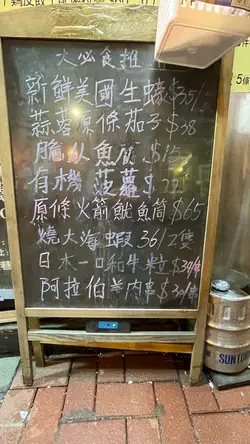 大必食推
新鮮美國生蠔$35/
蒜蓉原條茄子$38
脆魚同$15
有機菠蘿$22
原條火箭魷魚筒$65
燒大海蝦36/2隻
日本一口和牛粒$39/串
阿拉伯羊肉串$30/串
SUNTORY
5條